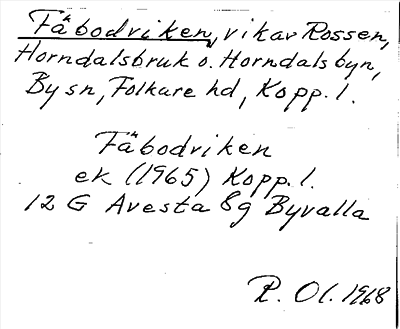 Fäbodviken, vik av Rossen,
Horndalsbruk o. Horndalsbyn,
By sn, Folkare hd, Kopp. l.
Fäbodviken
ek (1965) Kopp. l.
12 G Avesta 8g Byvalla
P. Ol. 1968